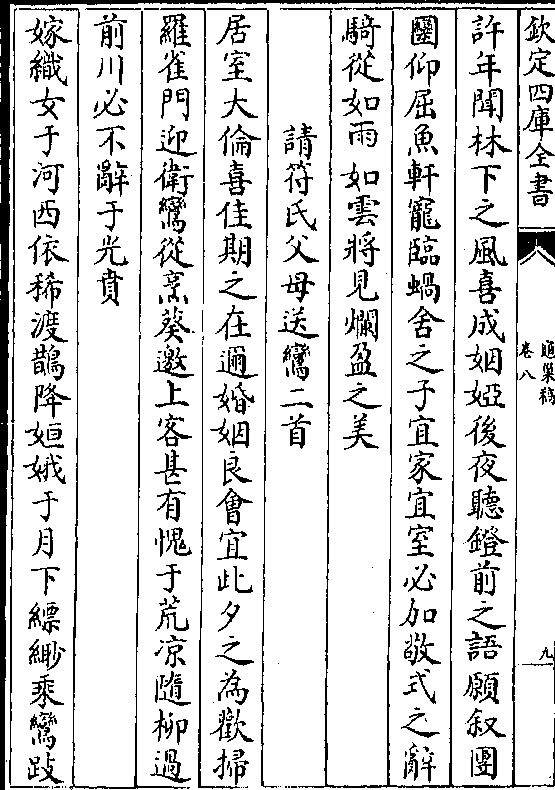 欽定四庫全書
卷八
九
許年聞林下之風喜成姻婭後夜聽鐙前之語願叙團
圞仰屈魚軒寵臨蝸舍之子宜家宜室必加敬式之辭
騎從如雨如雲將見爛盈之美
請符氏父母送鸞二首
居室大倫喜佳期之在邇婚姻良會宜此夕之為歡掃
羅雀門迎衛鸞從烹葵邀上客甚有愧于荒凉隨柳過
前川必不辭于光賁
嫁織女于河西依稀渡鵲降姮娥于月下縹緲乘鸞跂